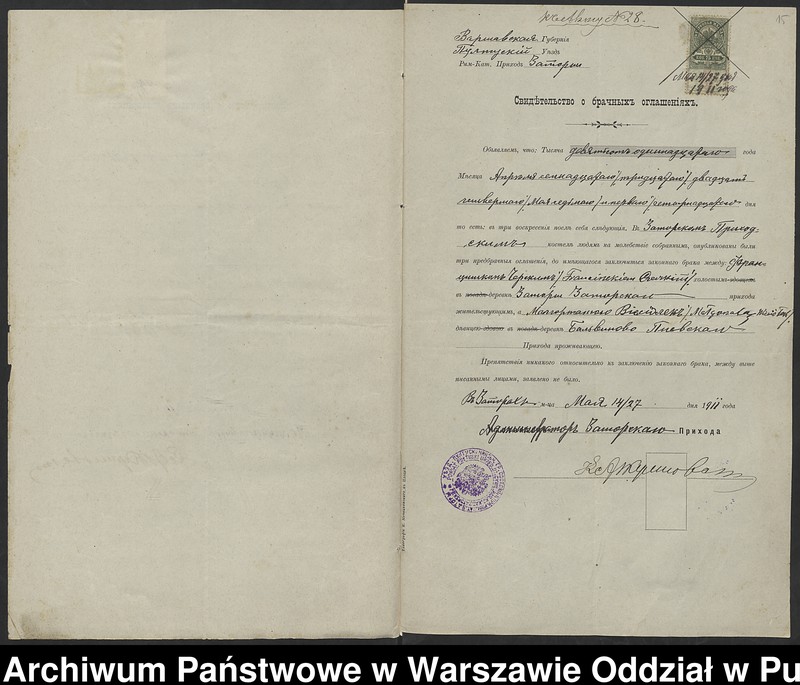 № 28.
15
Варшавская Губернія
Пултускій Уѣздъ
Рим-Кат. Прихода Заторы
Мая 14/27 дня
1911 года
Свидѣтельство о брачныхъ оглашеніяхъ.
Объявляемъ, что: Тысяча девятьсотъ одиннадцатаго года
Мѣсяца Апрѣля семнадцатаго /тридцатаго/, двадцать
четвертаго /Мая седьмаго/ и перваго /четырнадцатаго дня
то есть: въ три воскресенія послѣ себя слѣдующія. Въ Заторскомъ Приход-
скимъ костелѣ людямъ на молебствіе собраннымъ, опубликованы были
три предбрачныя оглашенія, до имѣющагося заключиться законнаго брака между: Фран-
цишкомъ /Franciszkiem холостымъ вдовцемъ
въ посадѣ деревнѣ Заторы Заторскаго прихода
жительствующимъ, а Малгоржатою
дѣвицею вдовою въ посадѣ деревнѣ Бальвиново Пневскаго
Прихода проживающею.
Препятствія никакого относительно къ заключенію законнаго брака, между выше
писанными лицами, заявлено не было.
Въ Заторахъ м-ца Мая 14/27 дня 1911 года
Администраторъ Заторскаго Прихода
Archiwum Państwowe w Warszawie Oddział w Pu